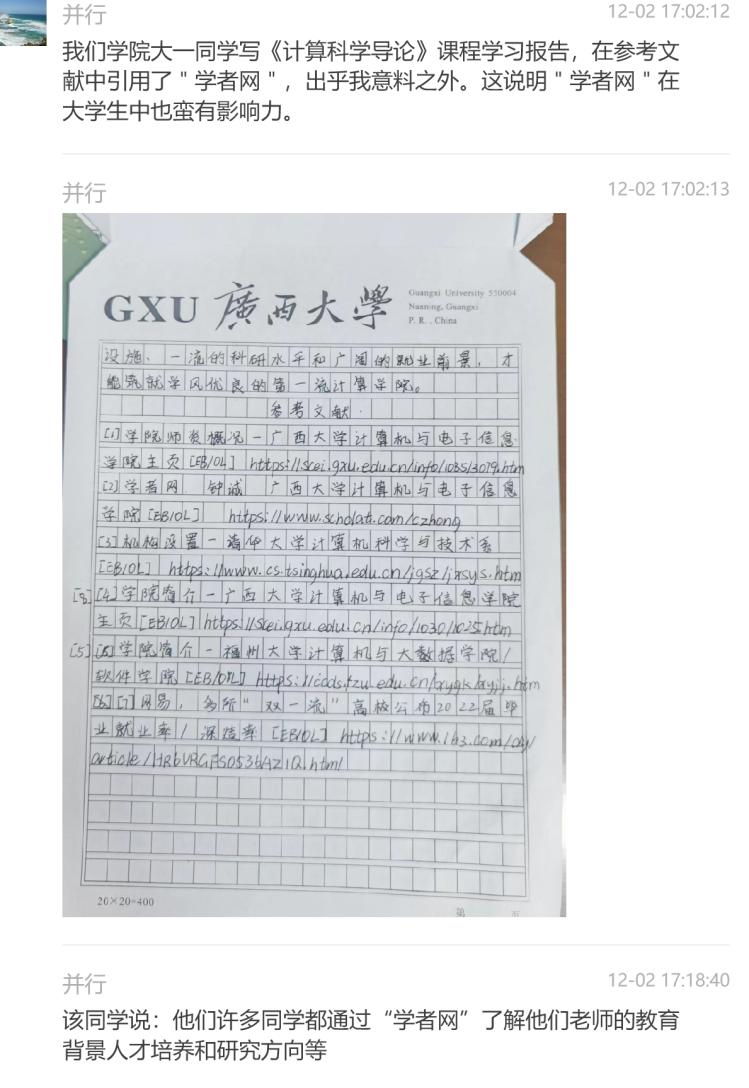 并行
12-02 17:02:12
我们学院大一同学写《计算科学导论》课程学习报告，在参考文
献中引用了＂学者网＂，出乎我意料之外。这说明＂学者网＂在
大学生中也蛮有影响力。
并行
12-02 17:02:13
GXU 廣西大學
Guangxi University 530004
Nanning, Guangxi
P. R. , China
设施、一流的科研水平和广阔的就业前景，才
能筑就学风优良的第一流计算学院。
参考文献.
[1]学院师资概况-广西大学计算机与电子信息
学院主页[EB/OL] https://scei.gxu.edu.cn/info/1035/3079.htm
[2]学者网 钟诚 广西大学计算机与电子信息
学院[EB/OL] https://www.scholat.com/czhong
[3]机构设置-清华大学计算机科学与技术系
[EB/OL] https://www.cs.tsinghua.edu.cn/jgsz/jxsys.htm
[4]学院简介-广西大学计算机与电子信息学院
主页[EB/OL]https://scei.gxu.edu.cn/info/1030/1025.htm
[5] 学院简介-福州大学计算机与大数据学院/
软件学院[EB/OL] https://ccds.fzu.edu.cn/xygk/xyjj.htm
[7]网易，多所“双一流”高校公布2022届毕
业就业率/深造率[EB/OL] https://www.163.com/dy/
article/HR6VRGFS0536AZ1Q.html
20×20=400
第 页
并行
12-02 17:18:40
该同学说：他们许多同学都通过“学者网”了解他们老师的教育
背景人才培养和研究方向等